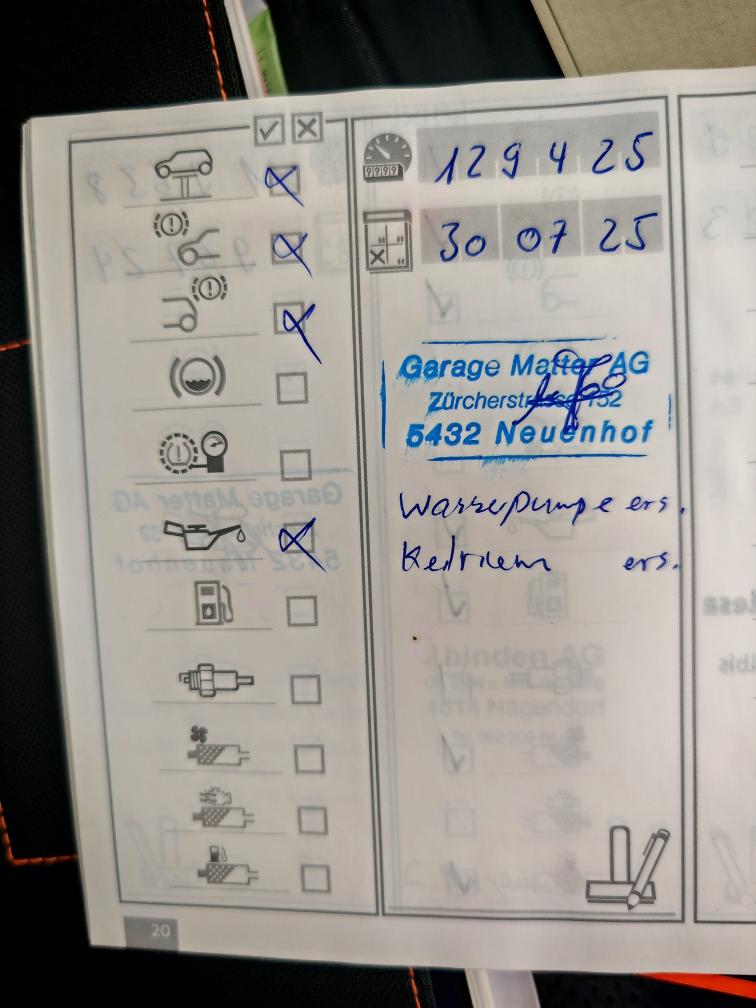 129425
30 07 25
Garage Matter AG
Zürcherstrasse 152
5432 Neuenhof
Wasserpumpe ers.
Keilriem ers.
20